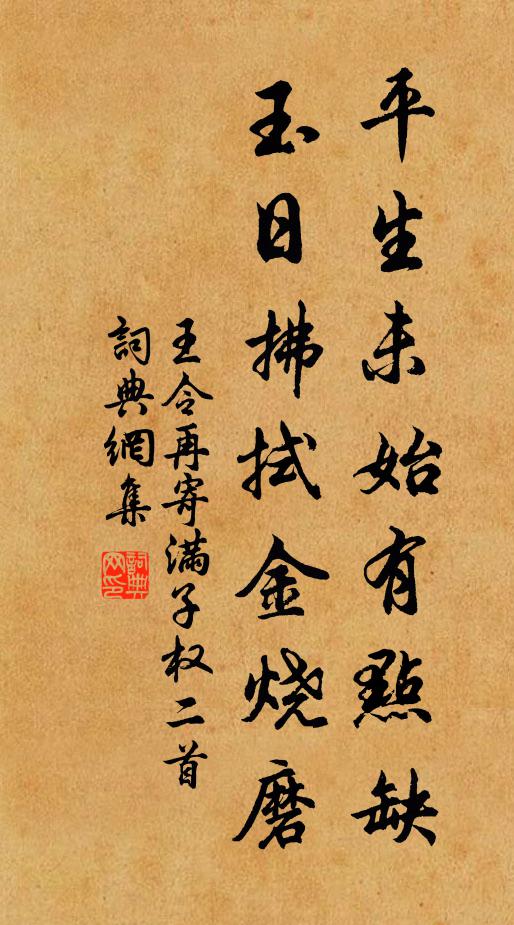 平生未始有點缺
玉日拂拭金烧磨
王令再寄满子权二首
詞典網集
詞典
网印